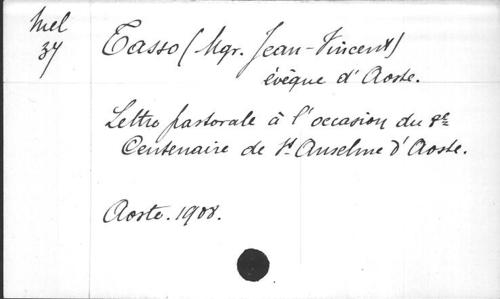 Mel
37
Tasso (Mgr. Jean-Vincent)
évêque d'Aoste.
Lettre pastorale à l'occasion du 8e
Centenaire de St Anselme d'Aoste.
Aoste. 1908.